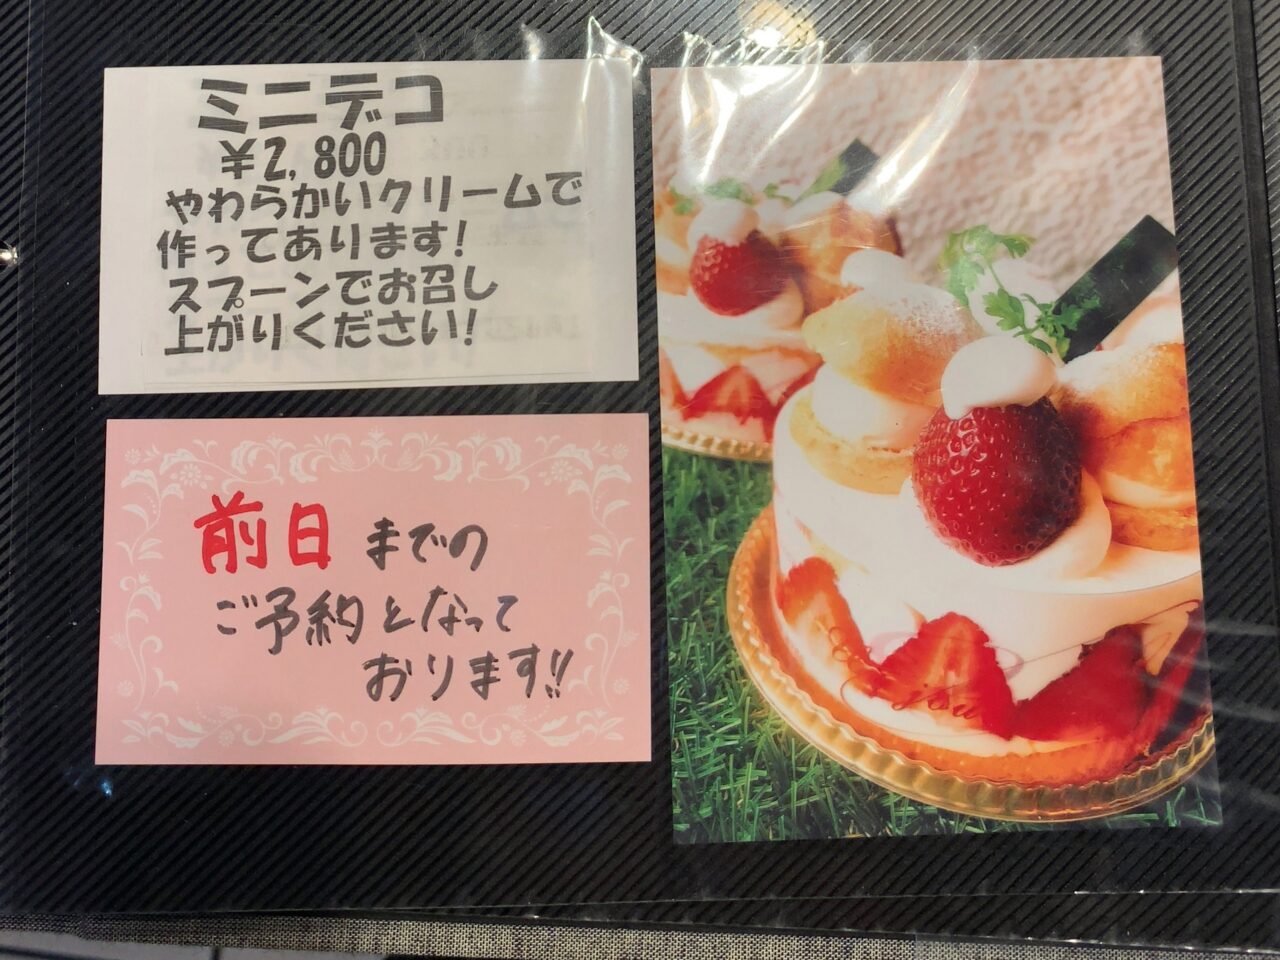 ミニデコ
¥2,800
やわらかいクリームで
作ってあります!
スプーンでお召し
上がりください!
前日までの
ご予約となって
おります!!